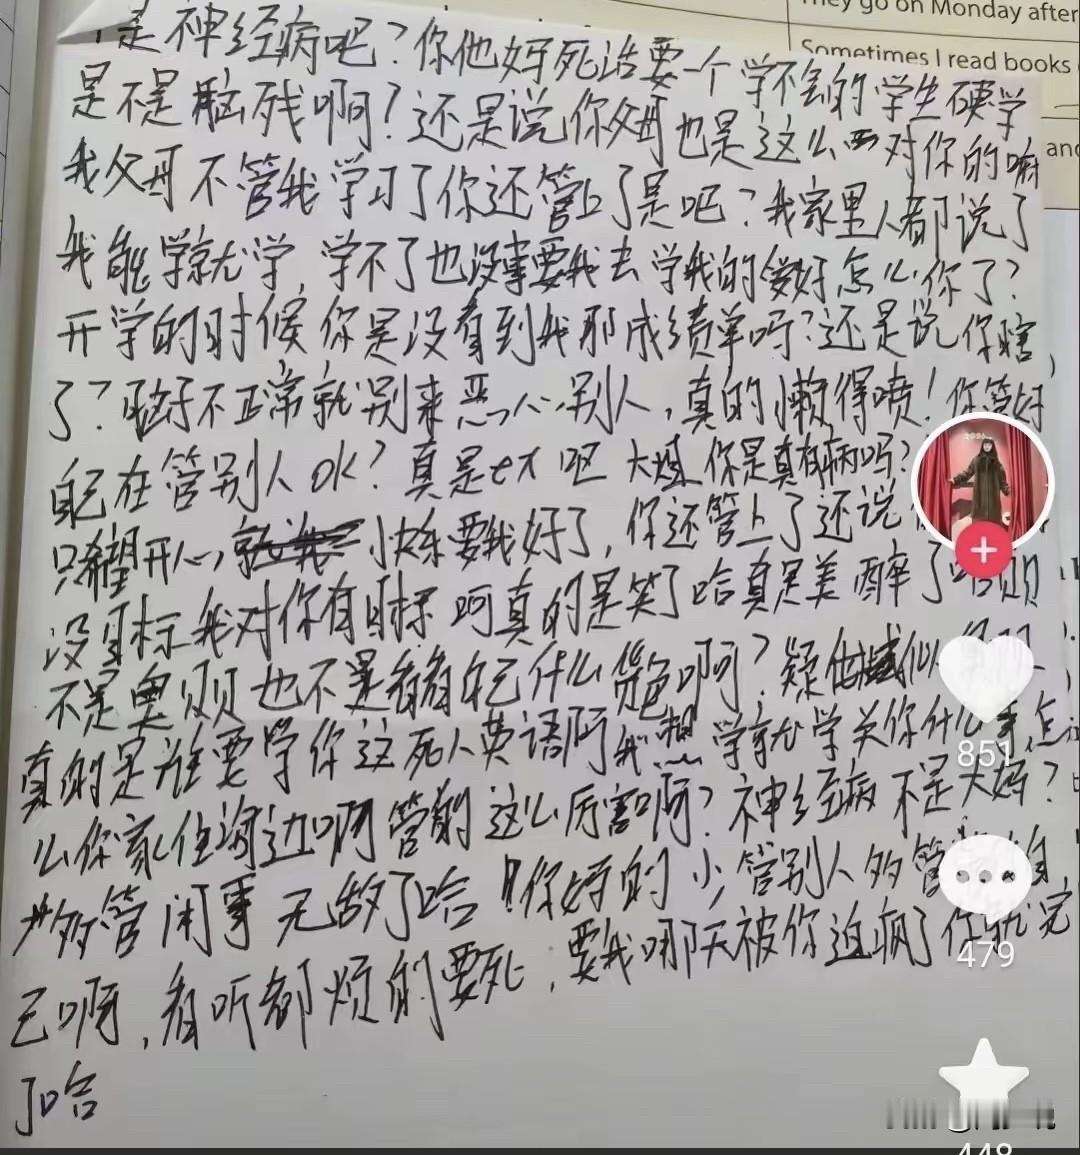 They go on Monday after
Sometimes I read books
and
是神经病吧?你他妈死活要一个学不会的学生硬学
是不是脑残啊?还是说你父母也是这么对你的嘛
我父母不管我学习了你还管上了是吧?我家里人都说了
我能学就学,学不了也没事要我去学我的我好怎么你了?
开学的时候你是没看到我那成绩单吗?还是说你瞎
了?脑子不正常就别来恶心别人,真的懒得喷!你管好
自己在管别人OK?真是 大婶你是真有病吗?
只希望开心, 要我好了,你还管上了还说
没目标我对你有目标呵真的是笑了哈真是美醉了
不是 也不是看看自己什么货色啊?疑似
真的是谁要学你这死人英语啊我想学就学关你什么事,怎
么你家住海边啊管的这么厉害啊?神经病不是大妈?
少多管闲事无敌了哈!你妈的少管别人多管 自
己啊,看听都烦的要死,要我哪天被你逼疯了你就完
了哈
851
479
448